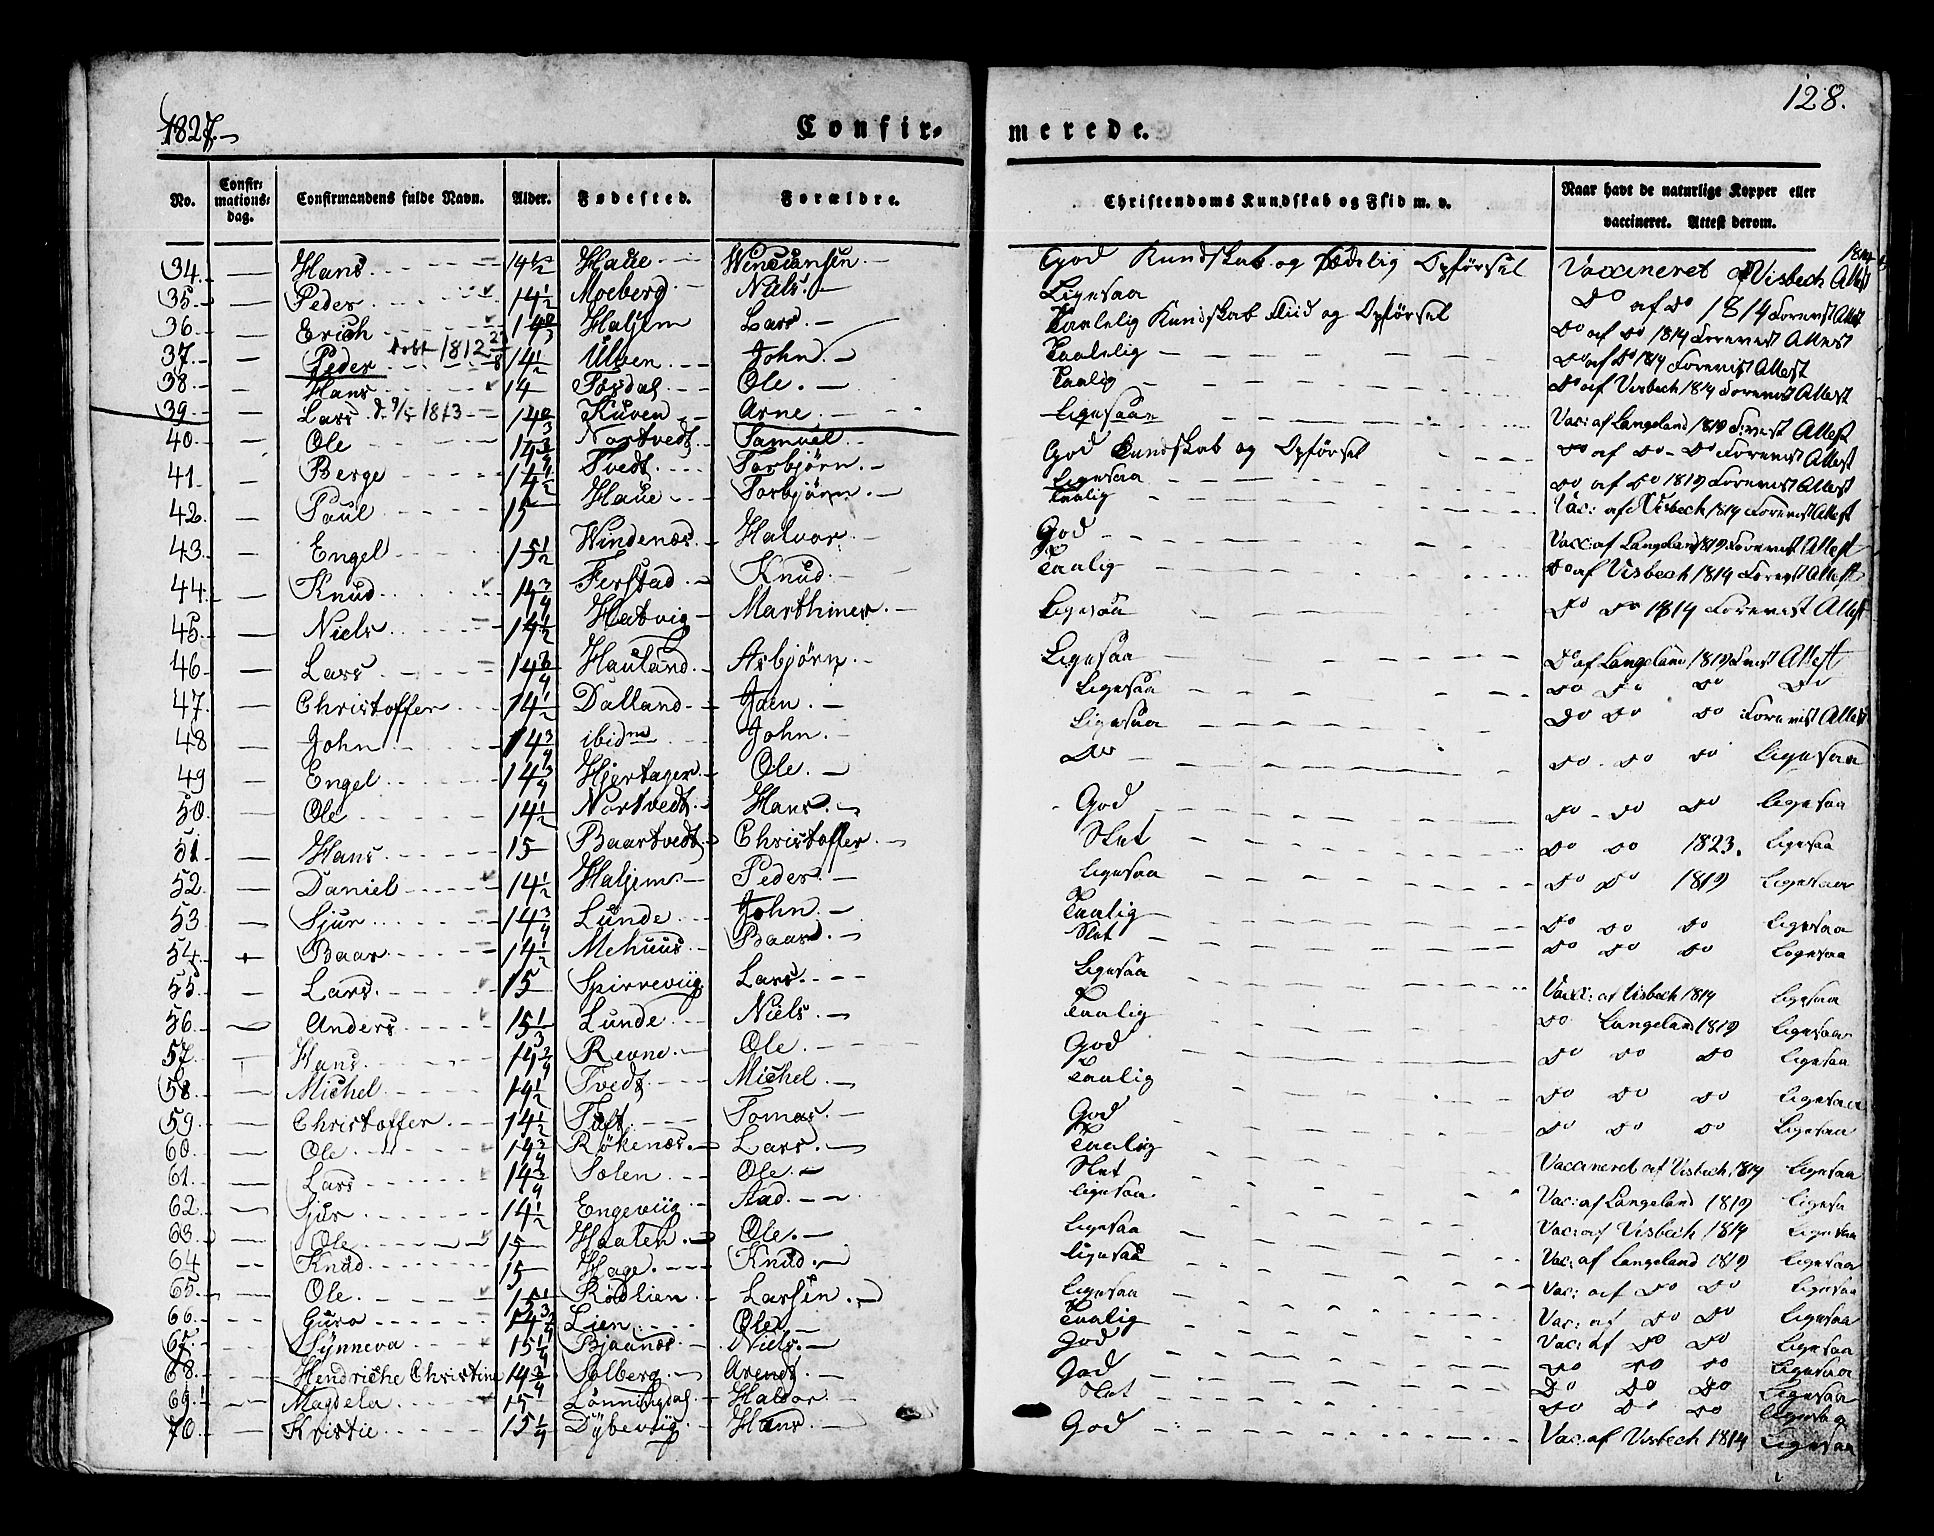 1827.
128.
Confir- merede.
No. | Confirmationsdag. | Confirmandens fulde Navn. | Alder. | Fødested. | Forældre. | Christendoms Kundskab og Flid m. v. | Naar havt de naturlige Kopper eller vaccineret. Attest derom.
34. — Hans — Haue God Kundskab og Sædelig Opførsel Vaccineret af Visbech Attest
35. — Peder 14 1/2 Moeberg Niels. — Ligesaa Do af Do 1814 Forevist Attest
36. — Erich Haljem Lars. — Taalelig Kundskab Fliid og Opførsel Do af Do 1814 Forevist Attest
37. — Peder 1812 14 1/2 Ulven John. — Taalelig Do af Do 1814 Forevist Attest
38. — Hans 14 Ole. — Taalig Do af Visbech 1814 Forevist Attest
39. — Lars 1813 Kuven Arne. — Ligesaa Vac: af Langeland 1819 Forevist Attest
40. — Ole 14 3/4 Nortvedt Samuel. — God Kundskab og Opførsel Do af Do - Do Forevist Attest
41. — Berge 14 1/2 Tvedt Torbjørn. — Ligesaa Do af Do 1819 Forevist Attest
42. — Paul 15 Haue Torbjørn. — Taalig Vac: af Visbech 1814 Forevist Attest
43. — Engel 15 1/2 Windenæs. Halvor. God Vacc: af Langeland 1819 Forevist Attest
44. — Knud 14 3/4 Ferstad Knud. — Taalig Do af Visbech 1814 Forevist Attest
45. — Niels 14 1/2 Hatvig Marthines. — Ligesaa Do Do 1814 Forevist Attest
46. — Lars 14 3/4 Hauland. Asbjørn. — Ligesaa Do af Langeland 1819 Forevist Attest
47. — Christoffer 14 1/2 Dalland Ligesaa Do Do Do Do
48 — John 14 3/4 ibidm John. — Ligesaa Do Do Do Forevist Attest
49 — Engel 14 3/4 Hjertager. Ole. — Do Do Do Do Ligesaa
50. — Ole 14 1/2 Nortvedt Hans. — God Do Do Do Ligesaa
51 — Hans 15 Baartvedt Christoffer. — Slet Do Do 1823. Ligesaa
52. — Daniel 14 1/2 Haljem Peder. — Ligesaa Do Do 1819 Ligesaa
53 — Sjur 14 3/4 Lunde John. — Taalig Do Do Do Ligesaa
54. — Baar 14 1/2 Mehuus Baar. — Slet Do Do Do Ligesaa
55. — Lars. 15 Lars. — Ligesaa Vacc: af Visbech 1814 Ligesaa
56. — Anders 15 1/3 Lunde Niels. — Taalig Do Langeland 1819 Ligesaa
57. Hans 14 3/4 Revne. Ole. — God Do Do Do Ligesaa
58. — Michel 14 1/2 Tvedt Michel. — Taalig Do Do Do Ligesaa
59. — Christoffer. 14 1/2 Tuft. Tomas. — God Do Do Do Ligesaa
60. — Ole. 14 3/4 Røkenæs. Lars. — Taalig Vaccineret af Visbech. 1814 Ligesaa
61. — Lars 14 3/4 Solen Ole. — Slet Vac: af Langeland 1819 Ligesaa
62. — Sjur 14 1/2 Engeviig — Ligesaa Vac: af Visbech 1814 Ligesaa
63. — Ole 15 Haalen Ole. — Ligesaa Vac: af Langeland 1819 Ligesaa
64 — Knud 15 Hage. Knud. — Ligesaa Vac: af Do Do Ligesaa
65. — Ole 15 1/4 Rødlien Larsen. — Ligesaa Vac: af Do Do Ligesaa
66. — Guro 14 3/4 Lien Ole. — Taalig Vac: af Do Do Ligesaa
67. — Synneva 15 1/4 Bjaanæs Niels. — God Do Do Do Ligesaa
68. — Hendriche Christine 14 3/4 Solberg Arendt God Do Do Do Ligesaa
69. — Magdela 15 Lønningdal Haldor Slet Do Do Do Ligesaa
70. — Kristie 15 1/4 Dybeviig Hans. — God Vac: af Visbech 1814 Ligesaa